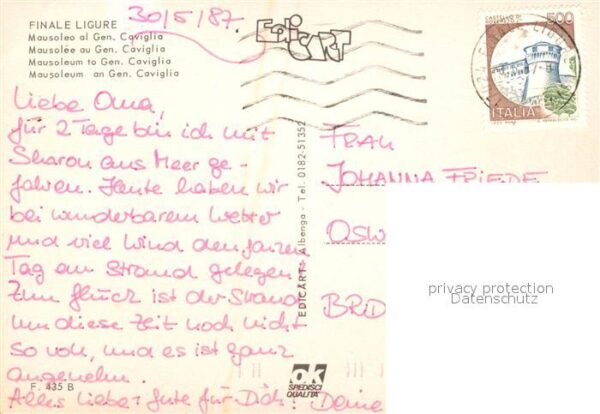 30/5/87.
FINALE LIGURE
Mausoleo al Gen. Caviglia
Mausolée au Gen. Caviglia
Mausoleum to Gen. Caviglia
Mausoleum an Gen. Caviglia
EdiCART
500
ITALIA
Liebe Oma,
für 2 Tage bin ich mit
Sharon ans Meer ge-
fahren. Heute haben wir
bei wunderbarem Wetter
und viel Wind den ganzen
Tag am Strand gelegen.
Zum Glück ist der Strand
um diese Zeit noch nicht
so voll, und es ist ganz
angenehm.
Alles Liebe + Gute für Dich! Deine
F. 435 B
EDICART - Albenga - Tel. 0182-51352
ok
SPEDISCI
QUALITÀ
FRAU
JOHANNA FRIEDE
OSW
BRD
privacy protection
Datenschutz